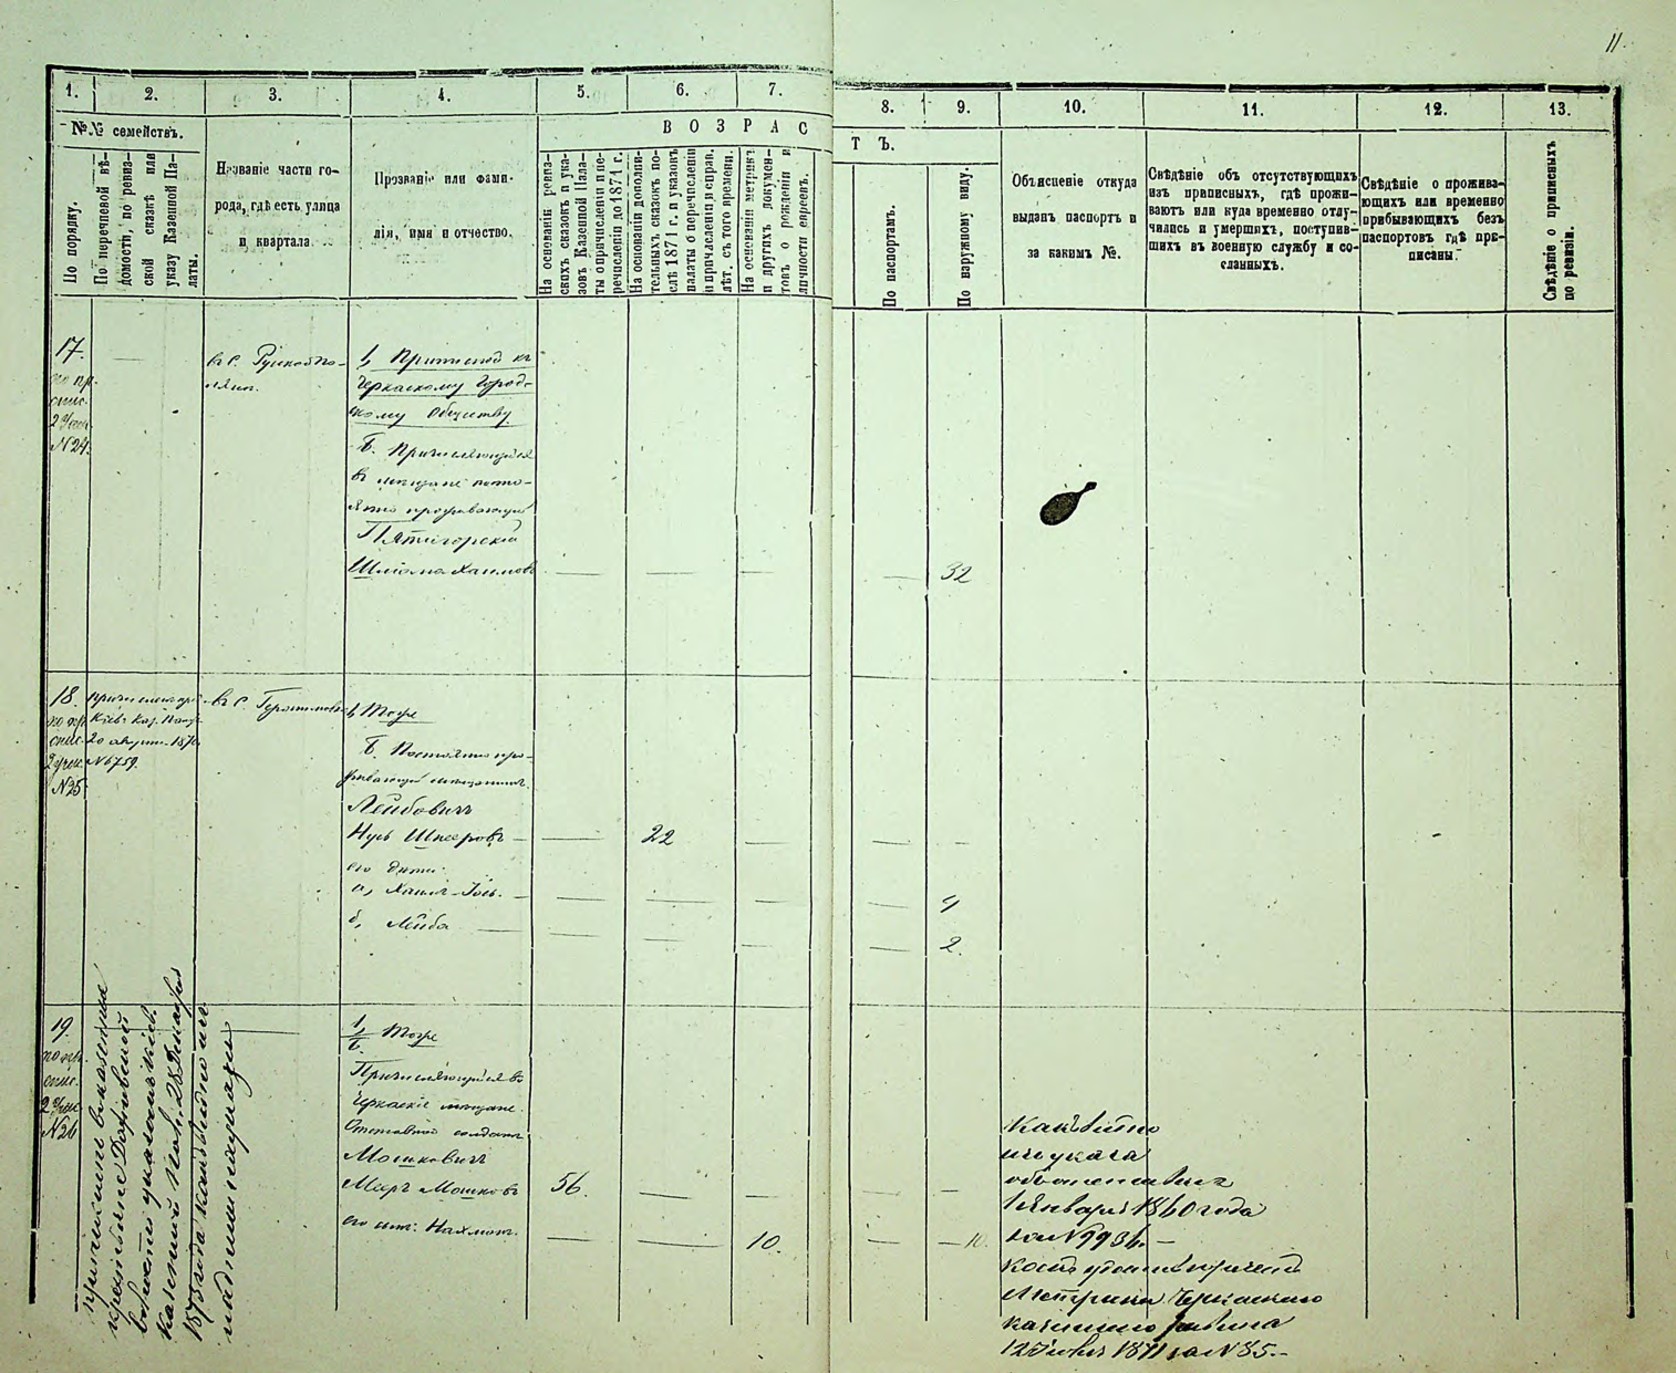 11.
1.
2.
3.
4.
5.
6.
7.
8.
9.
10.
11.
12.
13.
№№ семействъ.
В О З Р А С
Т Ъ.
По порядку.
По перечневой вѣ-
домости, по ревиз-
ской сказкѣ или
указу Казенной Па-
латы.
Названіе части го-
рода, гдѣ есть улица
и квартала
Прозваніе или фами-
лія, имя и отчество.
На основаніи ревиз-
скихъ сказокъ и ука-
зовъ Казенной Пала-
ты о причисленіи и пе-
речисленіи до 1871 г.
На основаніи дополни-
тельныхъ сказокъ по-
слѣ 1871 г. и указовъ
палаты о перечисленіи
и причисленія и справ.
лѣт. съ того времени.
На основаніи метрикъ
и другихъ докумен-
товъ о рожденіи и
личности евреевъ.
По паспортамъ.
По наружному виду.
Объясненіе откуда
выданъ паспортъ и
за какимъ №.
Свѣдѣніе объ отсутствующихъ
изъ приписныхъ, гдѣ прожи-
ваютъ или куда временно отлу-
чились и умершихъ, поступив-
шихъ въ военную службу и со-
сланныхъ.
Свѣдѣніе о прожива-
ющихъ или временно
прибывающихъ безъ
паспортовъ гдѣ при-
писаны.
Свѣдѣніе о приписныхъ
по ревизіи.
17.
по пр.
спис.
2 учас.
№24.
въ с. Руской По-
лянѣ.
Черкаскому Город-
скому Обществу
Б. Причисляющійся
въ мѣщане посто-
янно проживающій
Пятигорскій
Шліома Хаимовъ
32
18.
по пр.
спис.
2 учас.
№25
Кіев. Каз. Палат.
20 август. 1870
№6759.
въ с.
1, Тоже
Б. Постоянно про-
живающій мѣщанинъ
Лейбовичъ
Нусь Шнееровъ
22
его дѣти:
а, Хаимъ-Іось.
4
б, Лейба
2.
19.
по пр.
спис.
2 учас.
№26
1, Тоже
Б.
Причисляющійся въ
Черкаскіе мѣщане.
Отставной солдатъ
Мошковичъ
Мееръ Мошковъ
56.
его сынъ: Нахманъ.
10.
10.
какъ видно
изъ указа
объ отставкѣ
1 Января 1860 года
за №9936.
Метрики Черкаскаго
казеннаго равина
1871 за №85.
казенной
1873 года какъ видно изъ